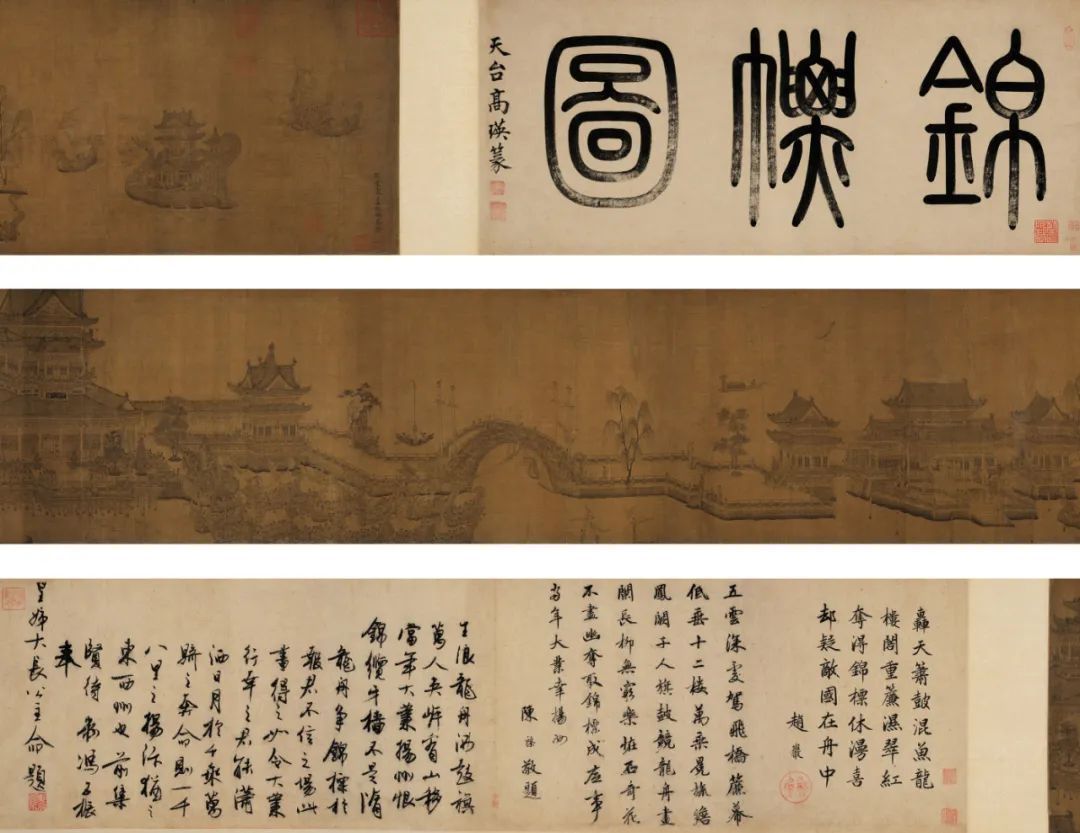 錦幖圖
天台高瑛篆
轟天簫鼓混魚龍
樓閣重簾濕翠紅
奪得錦標休漫喜
却疑敵國在舟中
趙巖
五雲深處駕飛橋簾幕
低垂十二樓萬乘冕旒臨
鳳閣千人旗鼓競龍舟畫
闌長柳無窮樂怪石奇花
不盡幽奪取錦標成底事
當年大業幸揚州
陳 敬題
浪龍舟 鼓旗
萬人 岸看山移
當年大業揚州恨
錦纜牙檣不是隋
龍舟爭錦標於
報君不信之場此
畫得之必令大業
行年之君能瀟
洒日月於千乘萬
騎之奔命則一千
八里之揚汴猶之
東西州也前集
賢待制馮子振
奉
皇姊大長公主命題